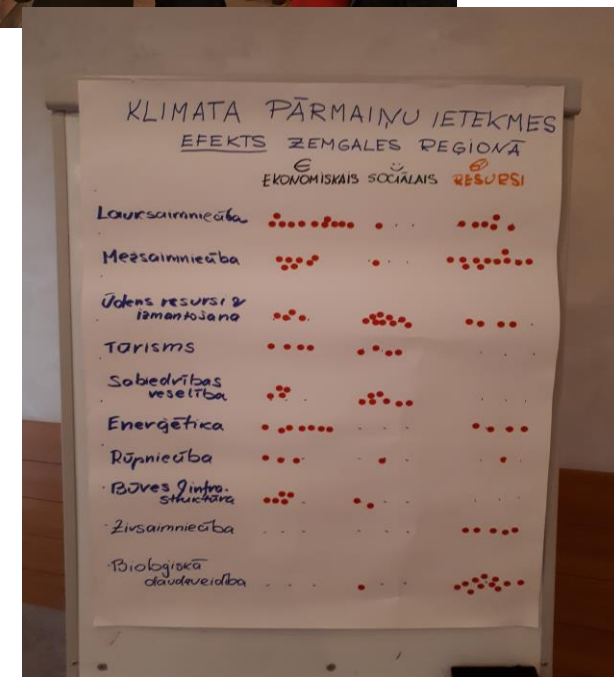 KLIMATA PĀRMAIŅU IETEKMES
EFEKTS ZEMGALES REĢIONĀ
€
EKONOMISKAIS SOCIĀLAIS RESURSI
Lauksaimniecība
Mežsaimniecība
Ūdens resursi &
izmantošana
TŪRISMS
Sabiedrības
veselība
Enerģētika
Rūpniecība
Būves & infra-
struktūra
Zivsaimniecība
Bioloģiskā
daudzveidība